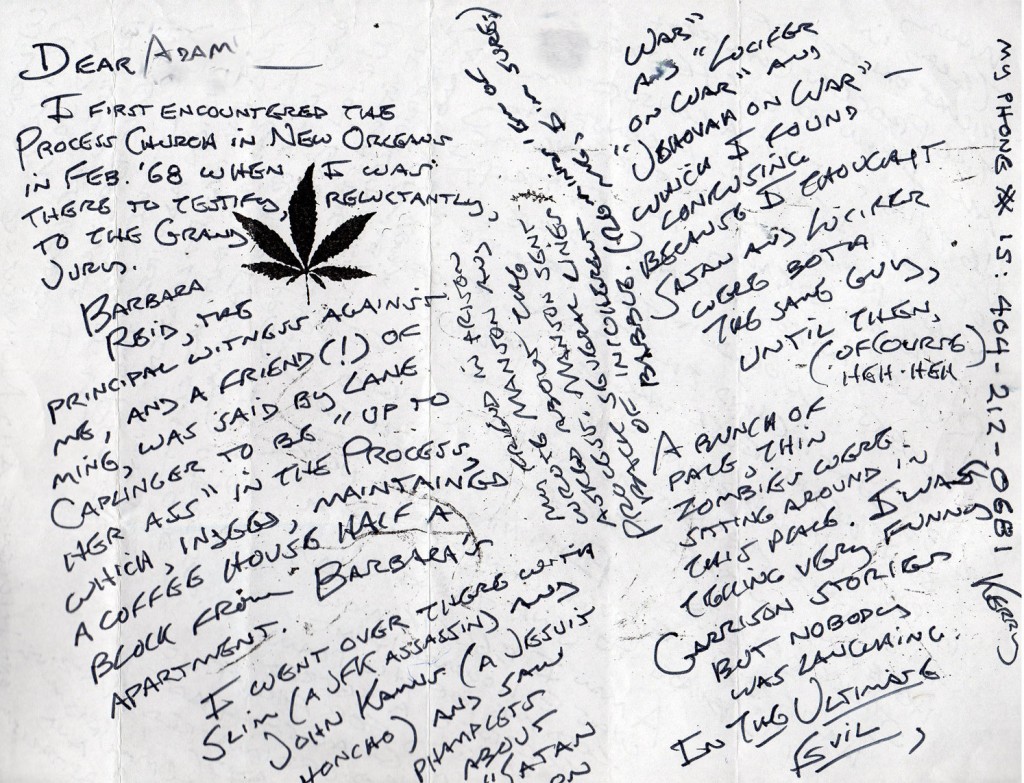 DEAR ADAM
I FIRST ENCOUNTERED THE
PROCESS CHURCH IN NEW ORLEANS
IN FEB. '68 WHEN I WAS
THERE TO TESTIFY, RELUCTANTLY,
TO THE GRAND
JURY.
BARBARA
REID, THE
PRINCIPAL WITNESS AGAINST
ME, AND A FRIEND (!) OF
MINE, WAS SAID BY LANE
CAPLINGER TO BE "UP TO
HER ASS" IN THE PROCESS,
WHICH, INDEED, MAINTAINED
A COFFEE HOUSE HALF A
BLOCK FROM BARBARA'S
APARTMENT.
I WENT OVER THERE WITH
SLIM (A JFK ASSASSIN) AND
JOHN KAMUS (A JESUIT
HONCHO) AND SAW
PHAMPLETS
ABOUT
"SATAN
ON
WAR"
AND "LUCIFER
ON WAR" AND
"JEHOVAH ON WAR" —
WHICH I FOUND
CONFUSING
BECAUSE I THOUGHT
SATAN AND LUCIFER
WERE BOTH
THE SAME GUY,
UNTIL THEN,
(OF COURSE
HEH-HEH)
A BUNCH OF
PALE, THIN
ZOMBIES WERE
SITTING AROUND IN
THIS PLACE. I WAS
TELLING VERY FUNNY
GARRISON STORIES
BUT NOBODY
WAS LAUGHING.
IN THE ULTIMATE
EVIL,
FRIEND IN PRISON
WROTE MANSON AND
ABOUT THE
MANSON SENT
SEVERAL LINES
INCOHERENT
OF BABBLE.
MY PHONE # IS: 404-212-0681 KERRY